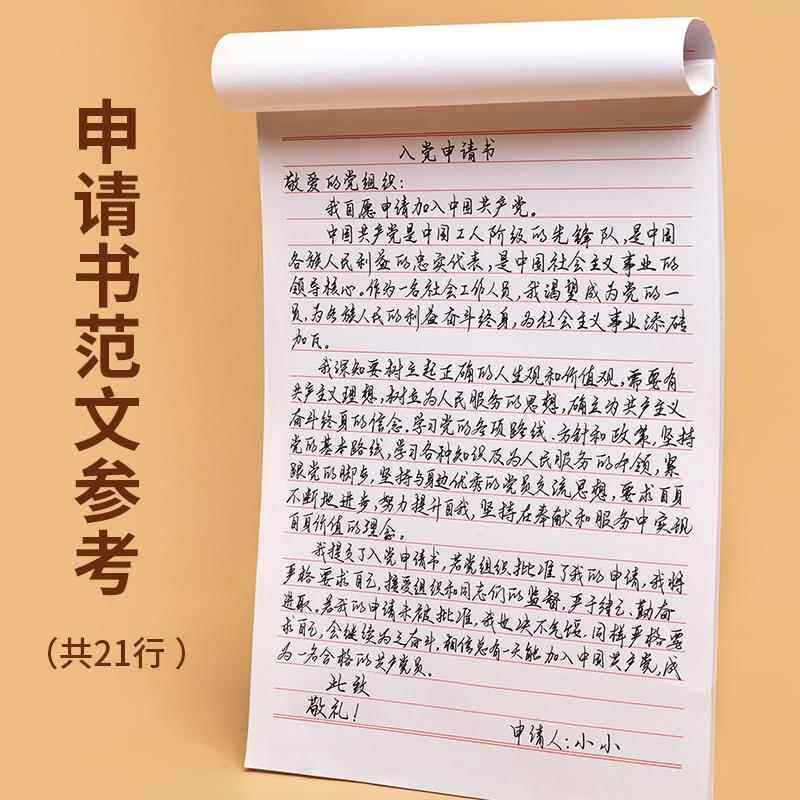 申请书范文参考
（共21行）
入党申请书
敬爱的党组织：
我自愿申请加入中国共产党。
中国共产党是中国工人阶级的先锋队，是中国
各族人民利益的忠实代表，是中国社会主义事业的
领导核心。作为一名社会工作人员，我渴望成为党的一
员，为各族人民的利益奋斗终身，为社会主义事业添砖
加瓦。
我深知要树立起正确的人生观和价值观，需要有
共产主义理想，树立为人民服务的思想，确立为共产主义
奋斗终身的信念。学习党的各项路线、方针和政策，坚持
党的基本路线，学习各种知识及为人民服务的本领，紧
跟党的脚步，坚持与身边优秀的党员交流思想，要求自身
不断地进步，努力提升自我，坚持在奉献和服务中实现
自身价值的理念。
我提交了入党申请书，若党组织批准了我的申请，我将
严格要求自己，接受组织和同志们的监督，严于律己、勤奋
进取。若我的申请未被批准，我也决不气馁，同样严格要
求自己，会继续为之奋斗，相信总有一天能加入中国共产党，成
为一名合格的共产党员。
此致
敬礼！
申请人：小小